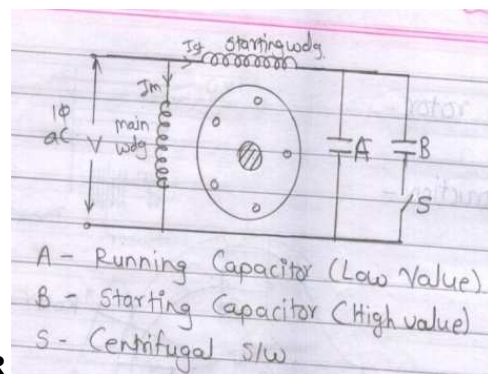 Ist Starting wdg.
Im
1Φ
ac V
main
wdg
A
B
S
A - Running Capacitor (Low Value)
B - Starting Capacitor (High value)
S - Centrifugal S/W
R